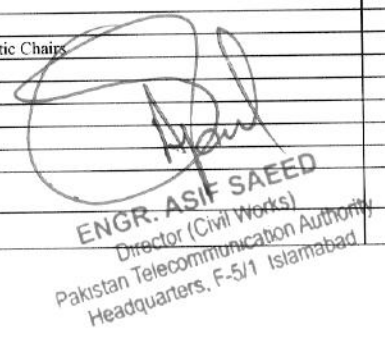 tic Chairs
ENGR. ASIF SAEED
Director (Civil Works)
Pakistan Telecommunication Authority
Headquarters, F-5/1 Islamabad